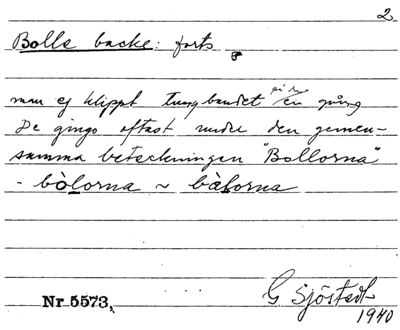 2
Bolls backe: forts
man ej klippt tungbandet på en gång
De gingo oftast under den gemen-
samma beteckningen "Bollorna"
- bòlorna ~ bàlorna
Nr 5573,
G Sjöstedt
1940